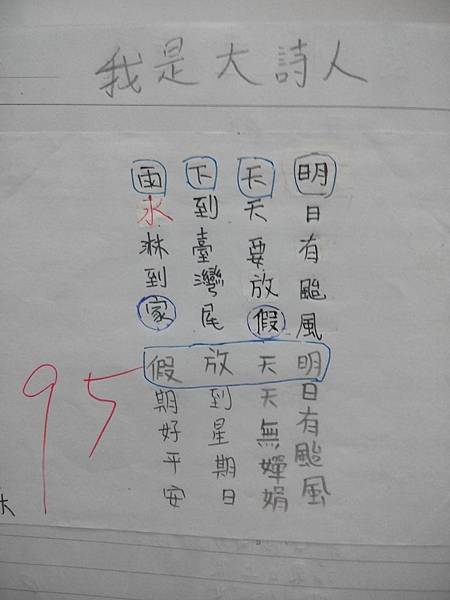 我是大詩人
明日有颱風
天天要放假
下到臺灣尾
雨水淋到家
明日有颱風
天天無嬋娟
放到星期日
假期好平安
95